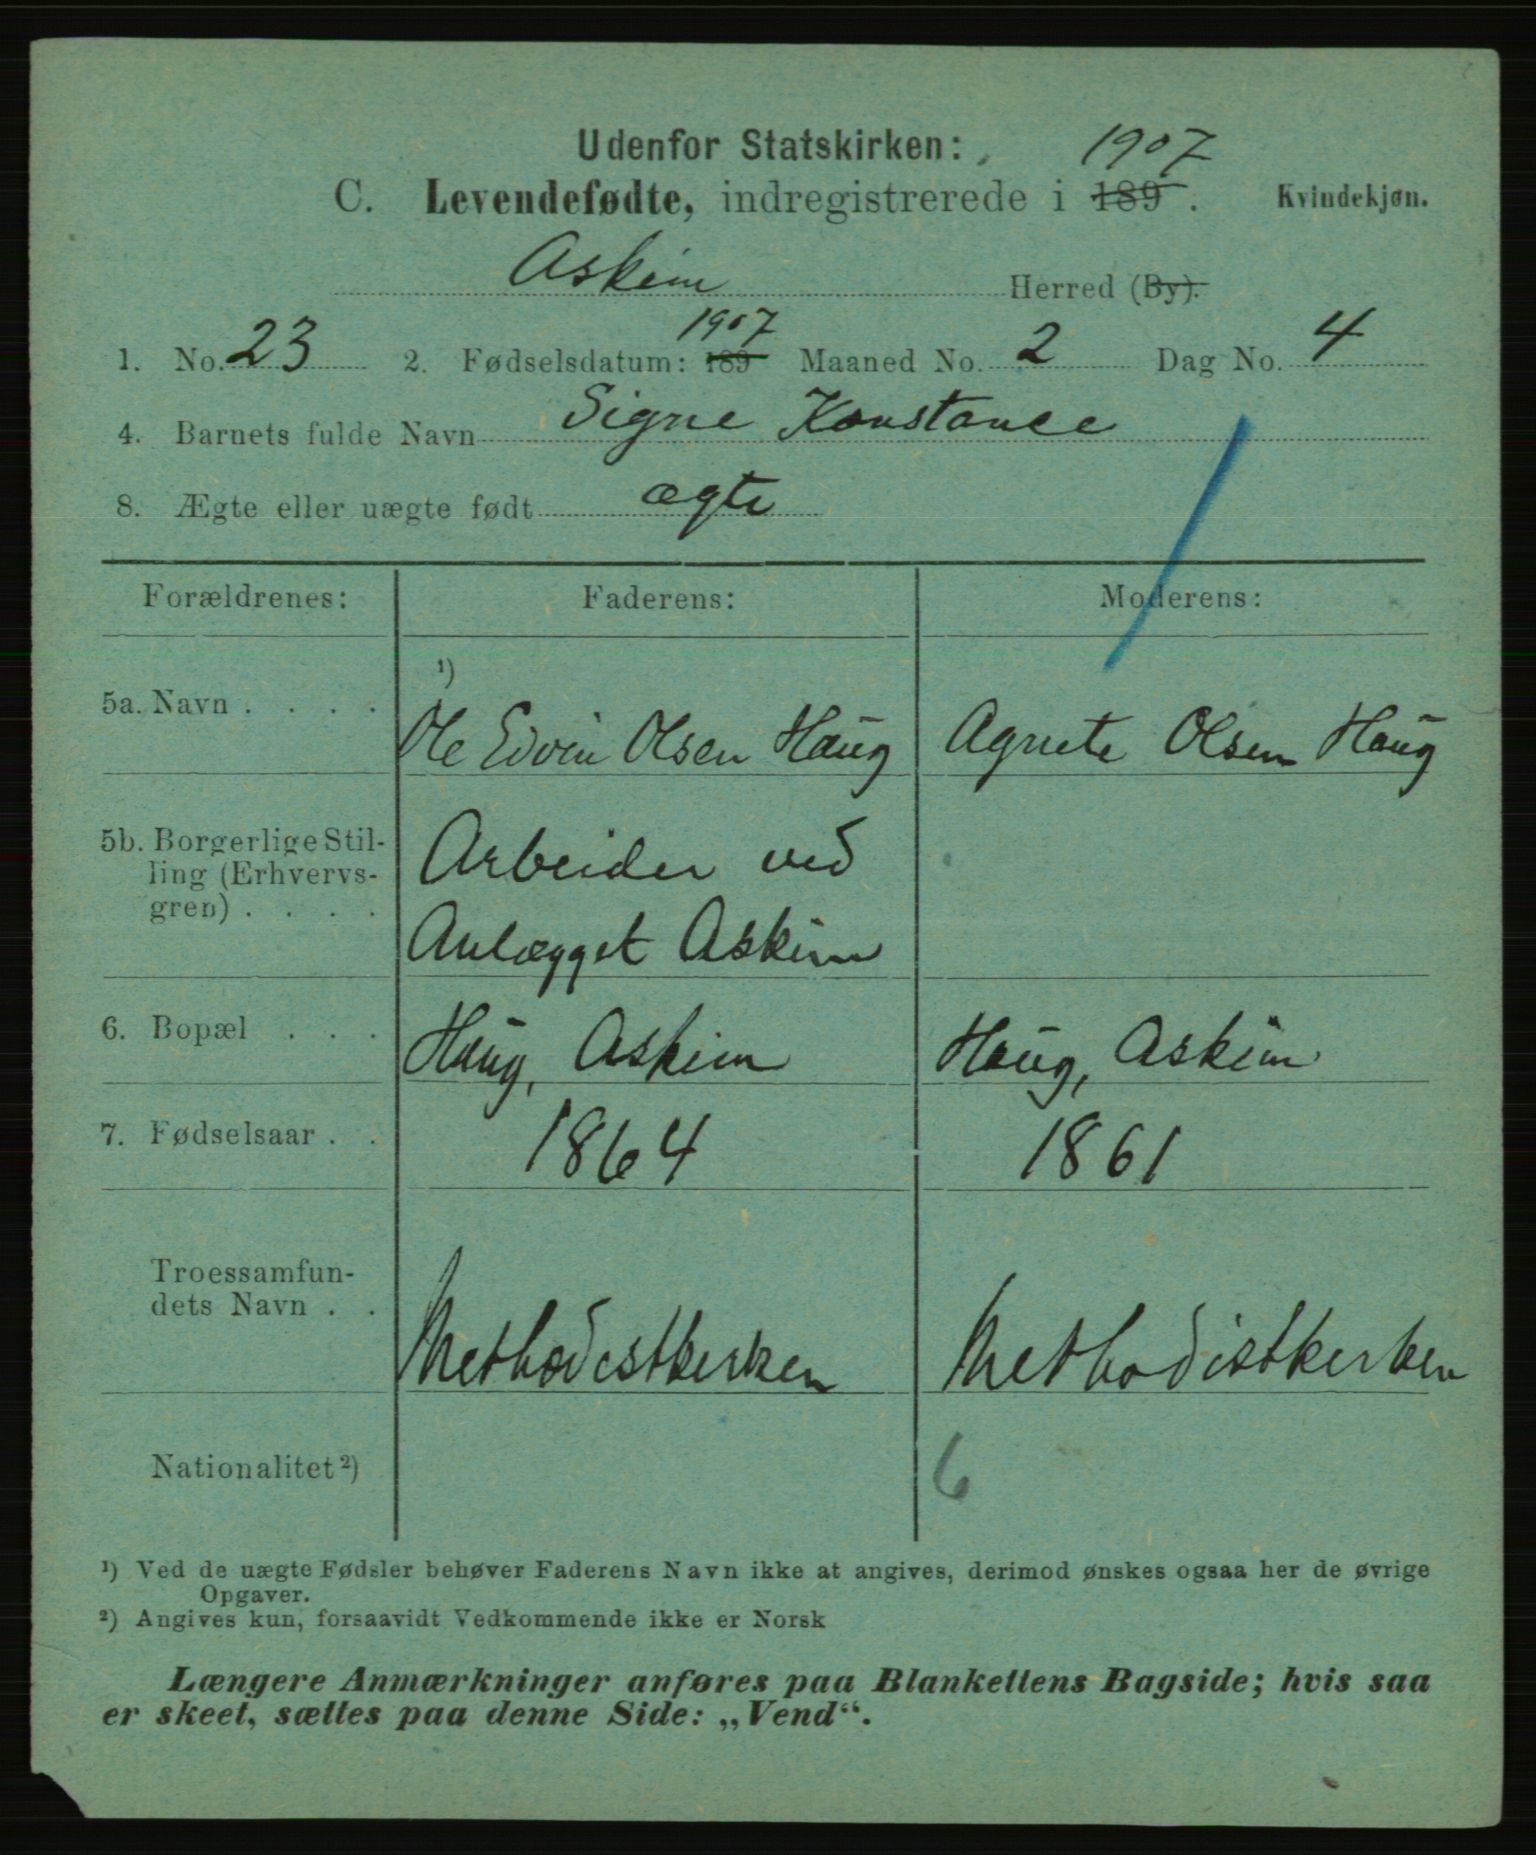 Udenfor Statskirken:
1907
C. Levendefødte, indregistrerede i 189 . Kvindekjøn.
Askim Herred (By).
1907
1. No. 23 2. Fødselsdatum: 189 Maaned No. 2 Dag No. 4
4. Barnets fulde Navn Signe Konstance
8. Ægte eller uægte født ægte
Forældrenes: Faderens: Moderens:
1)
5a. Navn . . . . Ole Edvin Olsen Haug Agnete Olsen Haug
5b. Borgerlige Stil-
ling (Erhvervs-
gren) . . . .
Arbeider ved
Anlægget Askim
6. Bopæl . . . Haug, Askim Haug, Askim
7. Fødselsaar . . 1864 1861
Troessamfun-
dets Navn . .
Methodistkirken Methodistkirken
Nationalitet 2) 6
1) Ved de uægte Fødsler behøver Faderens Navn ikke at angives, derimod ønskes ogsaa her de øvrige
Opgaver.
2) Angives kun, forsaavidt Vedkommende ikke er Norsk
Længere Anmærkninger anføres paa Blankettens Bagside; hvis saa
er skeet, sættes paa denne Side: „Vend“.